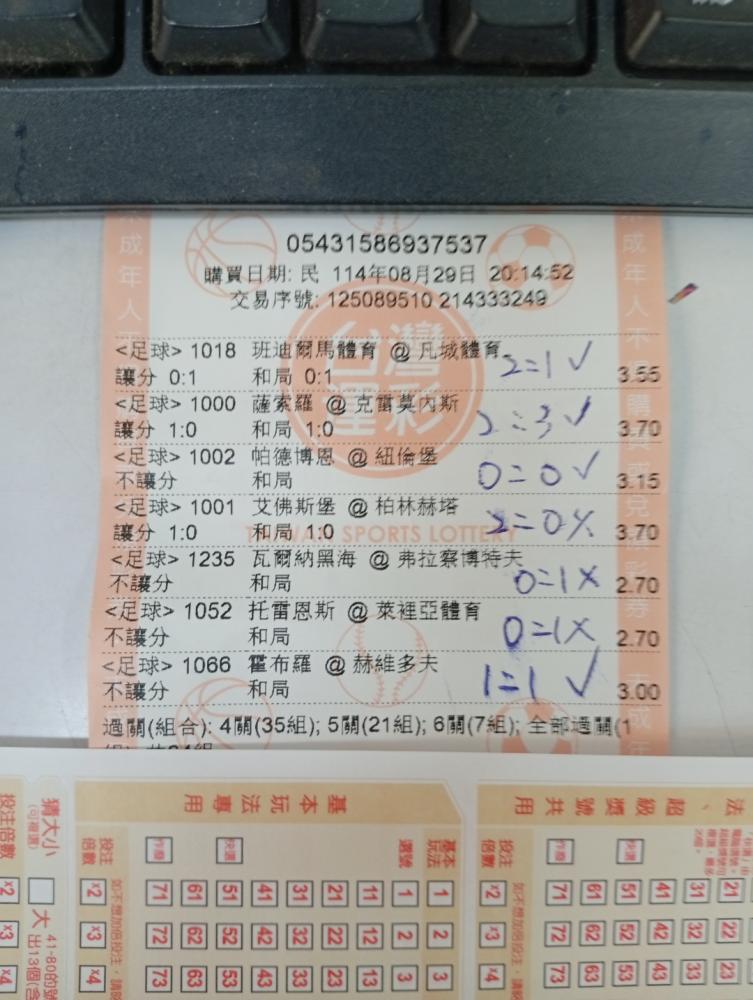 05431586937537
購買日期: 民 114年08月29日 20:14:52
交易序號: 125089510 214333249
<足球> 1018 班迪爾馬體育 @ 凡城體育 2=1 ✓
讓分 0:1 和局 0:1 3.55
<足球> 1000 薩索羅 @ 克雷莫內斯 2=3 ✓
讓分 1:0 和局 1:0 3.70
<足球> 1002 帕德博恩 @ 紐倫堡 0=0 ✓
不讓分 和局 3.15
<足球> 1001 艾佛斯堡 @ 柏林赫塔 2=0 X
讓分 1:0 和局 1:0 3.70
<足球> 1235 瓦爾納黑海 @ 弗拉察博特夫 0=1 X
不讓分 和局 2.70
<足球> 1052 托雷恩斯 @ 萊裡亞體育 0=1 X
不讓分 和局 2.70
<足球> 1066 霍布羅 @ 赫維多夫 1=1 ✓
不讓分 和局 3.00
過關(組合): 4關(35組); 5關(21組); 6關(7組); 全部過關(1
台灣
運彩
TAIWAN SPORTS LOTTERY
成年人不
基本玩法專用
基本玩法
選號
1 2 3
1 11 21 31 41 51 61 71
2 12 22 32 42 52 62 72
3 13 23 33 43 53 63 73
快選
作廢
投注倍數
x2 x3 x4
猜大小
(可複選)
大
法、超級獎號共用
21 31 41 51 61 71
22 32 42 52 62 72
23 33 43 53 63 73
快選
作廢
投注倍數
x2 x3 x4
投注倍數
x2 x3 x4